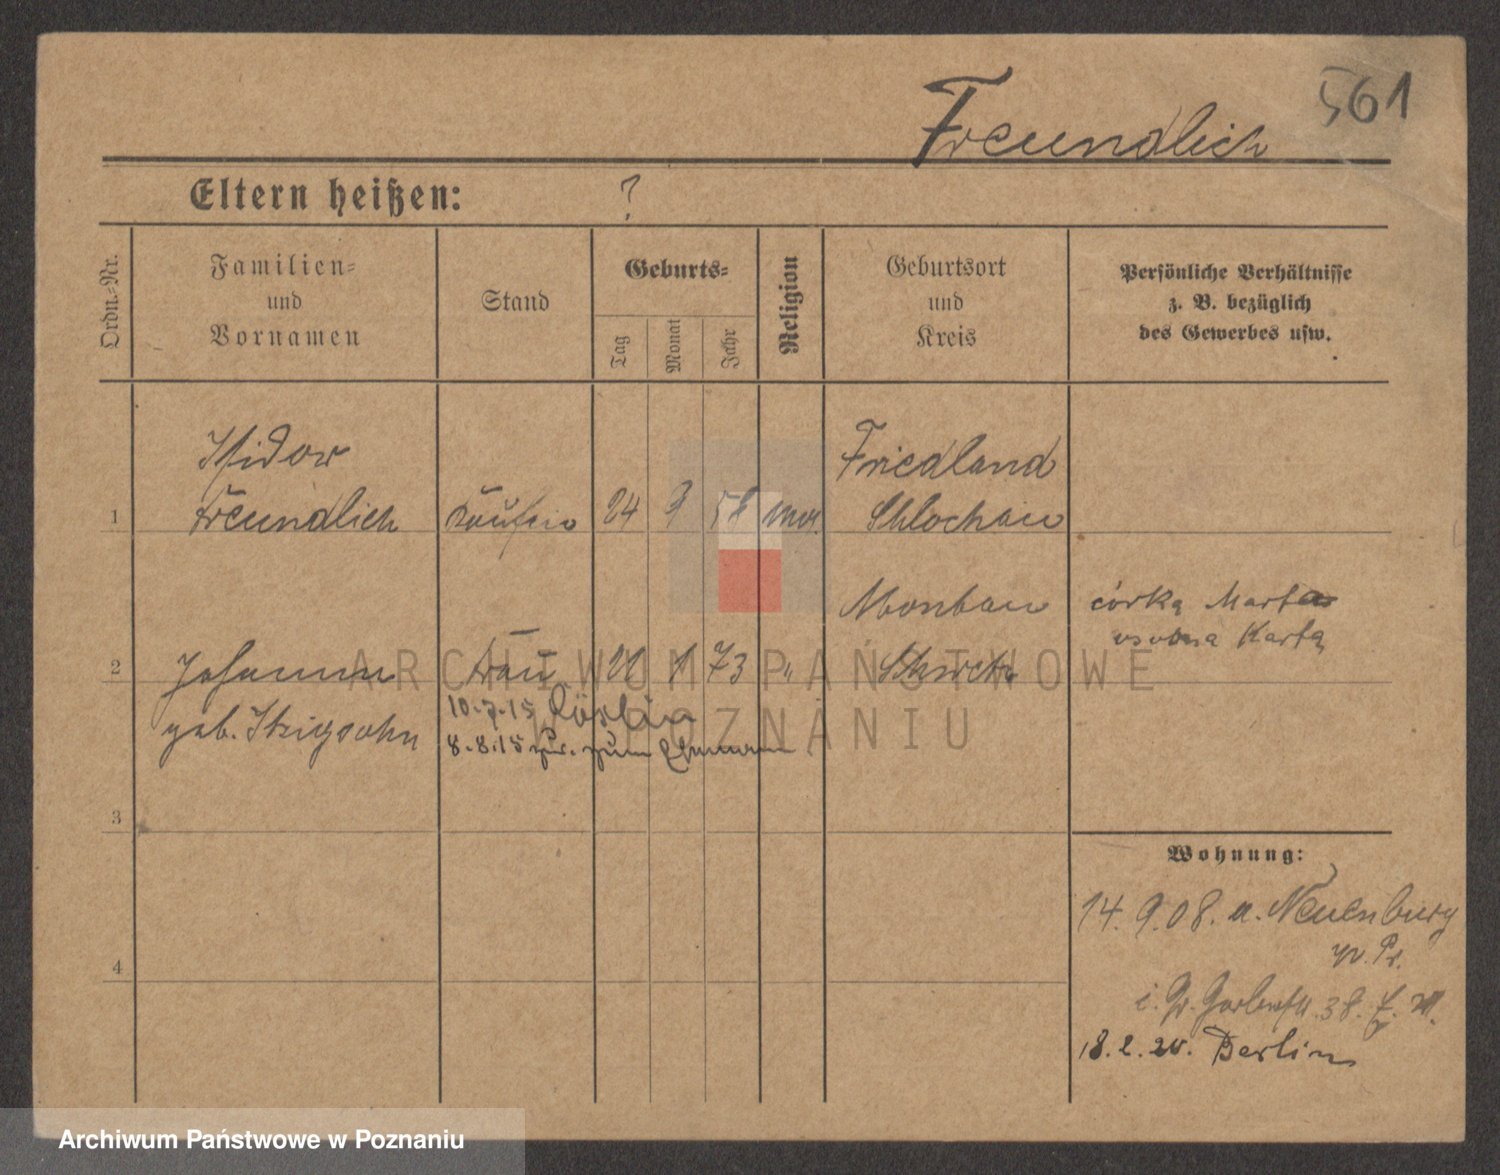 561
Freundlich
Eltern heißen: ?
Ordn.-Nr.
Familien-
und
Vornamen
Stand
Geburts-
Tag
Monat
Jahr
Religion
Geburtsort
und
Kreis
Persönliche Verhältnisse
z. B. bezüglich
des Gewerbes usw.
Isidor
Friedland
1 Freundlich 24 9 mos. Schlochau
Montau
córka Marta
osobna Karta
2 Johanna Frau 21 1 73 " Schwetz
geb. Itzigsohn
10.7.15 Köslin
8.8.15 zur. zum Ehemann
3
Wohnung:
14.9.08. a. Neuenburg
W. Pr.
4
i. Gr. Gerberstr. 38.
18.2.20. Berlin
ARCHIWUM PAŃSTWOWE
W POZNANIU
Archiwum Państwowe w Poznaniu